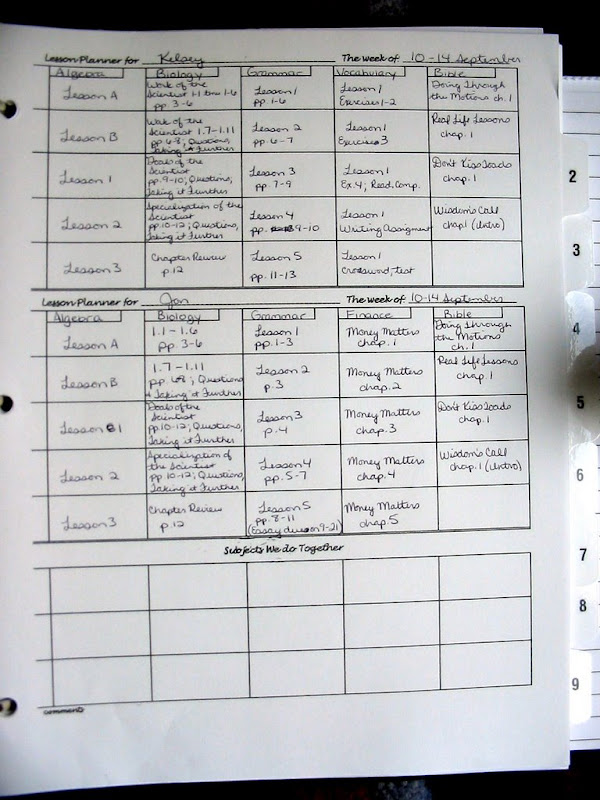 Lesson Planner for Kelsey The week of 10-14 September
Algebra Biology Grammar Vocabulary Bible
Lesson A
Work of the
Scientist 1-1 thru 1-6
pp. 3-6
Lesson 1
pp. 1-6
Lesson 1
Exercises 1-2
Doing Through
the Motions ch. 1
Lesson B
Work of the
Scientist 1.7-1.11
pp 6-8; Questions,
Taking it Further
Lesson 2
pp. 6-7
Lesson 1
Exercise 3
Real Life Lessons
chap. 1
Lesson 1
Goals of the
Scientist
pp. 9-10; Questions;
Taking it Further
Lesson 3
pp. 7-9
Lesson 1
Ex. 4; Read. Comp.
Don't Kiss Toads
chap. 1
Lesson 2
Specialization of the
Scientist
pp. 10-12; Questions,
Taking it Further
Lesson 4
pp. 9-10
Lesson 1
Writing Assignment
Wisdom's Call
chap 1 (intro)
Lesson 3
Chapter Review
p. 12
Lesson 5
pp. 11-13
Lesson 1
Crossword, Test
Lesson Planner for Jon The week of 10-14 September
Algebra Biology Grammar Finance Bible
Lesson A
1.1-1.6
pp. 3-6
Lesson 1
pp. 1-3
Money Matters
chap. 1
Doing Through
the Motions
ch. 1
Lesson B
1.7-1.11
pp. 6-8; Questions
+ Taking it Further
Lesson 2
p. 3
Money Matters
chap. 2
Real Life Lessons
chap. 1
Lesson 1
Goals of the
Scientist
pp. 10-12; Questions,
Taking it Further
Lesson 3
p. 4
Money Matters
chap. 3
Don't Kiss Toads
chap. 1
Lesson 2
Specialization of
the Scientist
pp. 10-12; Questions,
Taking it Further
Lesson 4
pp. 5-7
Money Matters
chap. 4
Wisdom's Call
chap. 1 (intro)
Lesson 3
Chapter Review
p. 12
Lesson 5
pp. 8-11
(Essay due on 9-21)
Money Matters
chap. 5
Subjects We do Together
comments
2
3
4
5
6
7
8
9